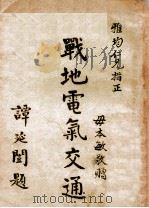 雅珣仁兄指正
毋本敏敬贈
戰地電氣交通
譚延闓題